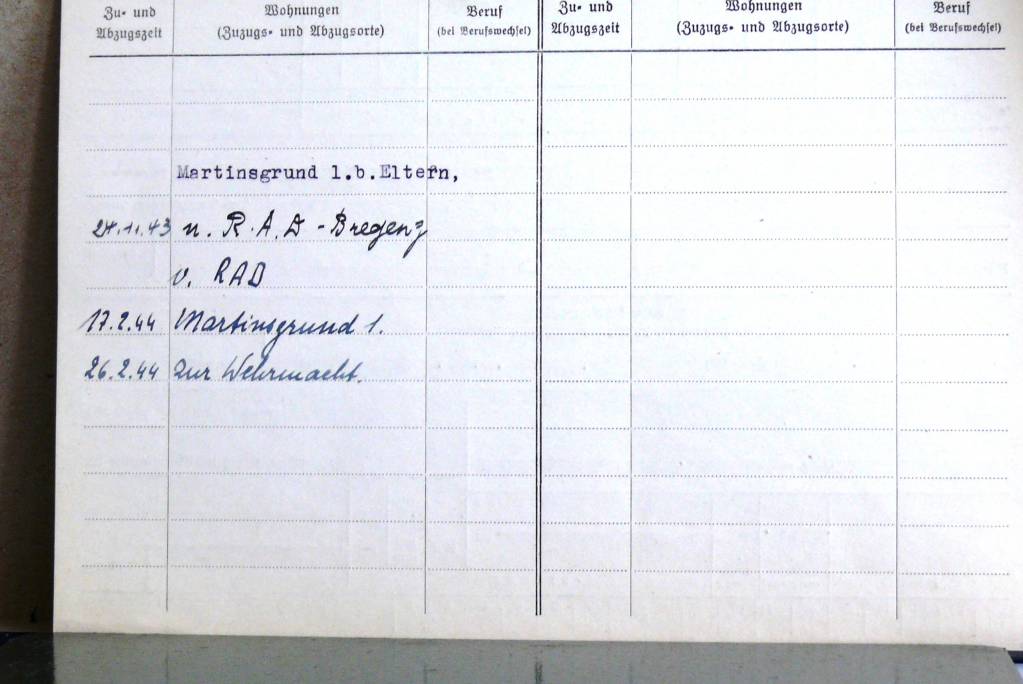 Zu- und Abzugszeit
Wohnungen
(Zuzugs- und Abzugsorte)
Beruf
(bei Berufswechsel)
Zu- und Abzugszeit
Wohnungen
(Zuzugs- und Abzugsorte)
Beruf
(bei Berufswechsel)
Martinsgrund 1.b.Eltern,
24.11.43 n. R.A.D - Bregenz
v. RAD
17.2.44 Martinsgrund 1.
26.2.44 zur Wehrmacht.